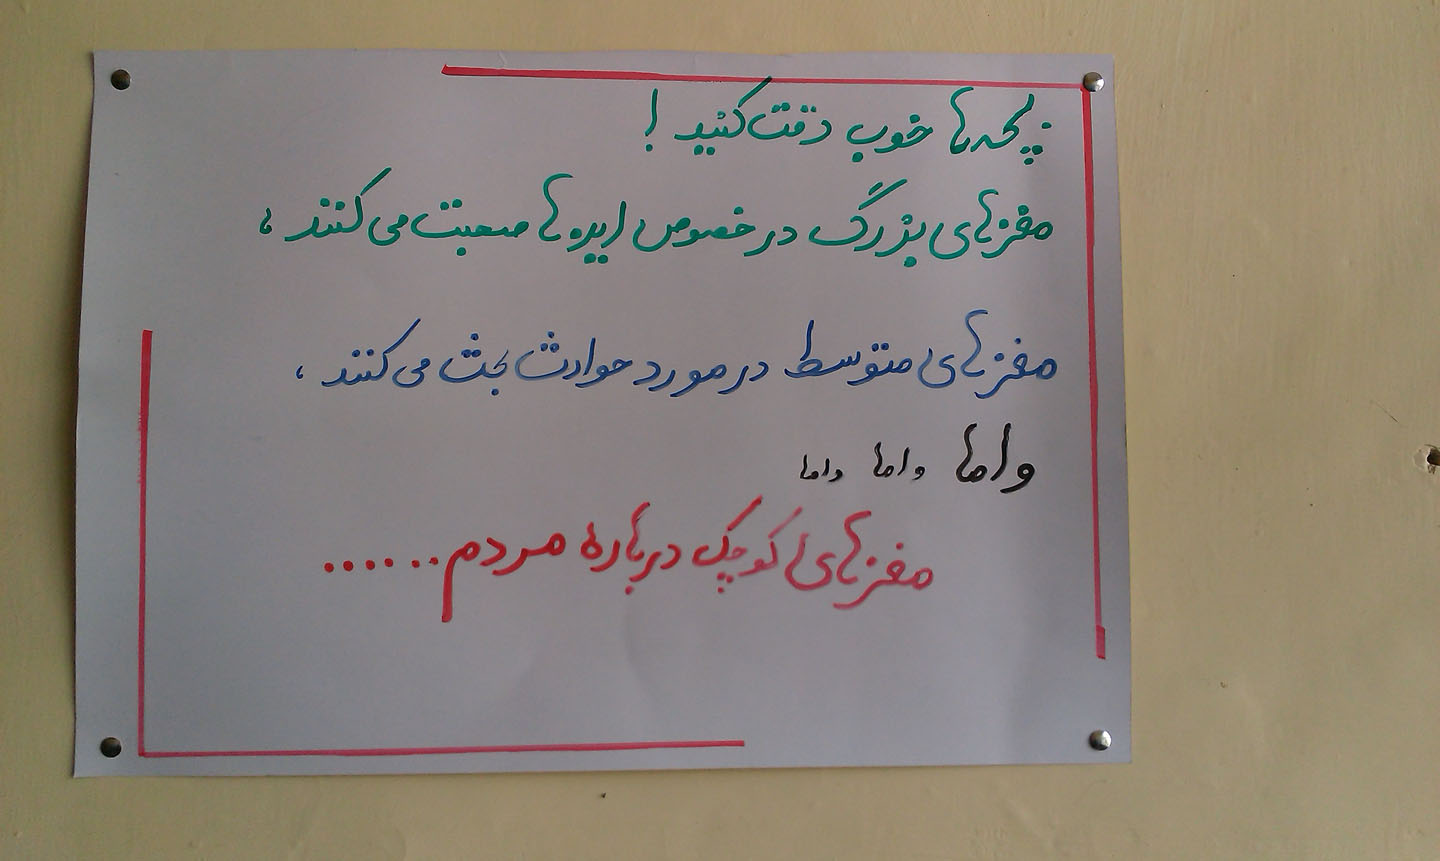 بچه‌ها خوب دقت کنید !
مغزهای بزرگ در خصوص ایده‌ها صحبت می‌کنند ،
مغزهای متوسط در مورد حوادث بحث می‌کنند ،
واما واما واما
مغزهای کوچک درباره مردم......